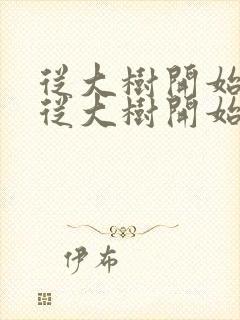 從大樹開始
從大樹開始
伊布